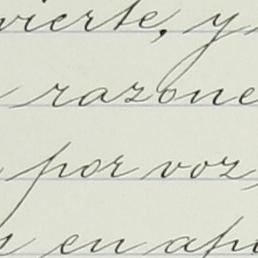 vierte, y
razone
por voz,
en ap